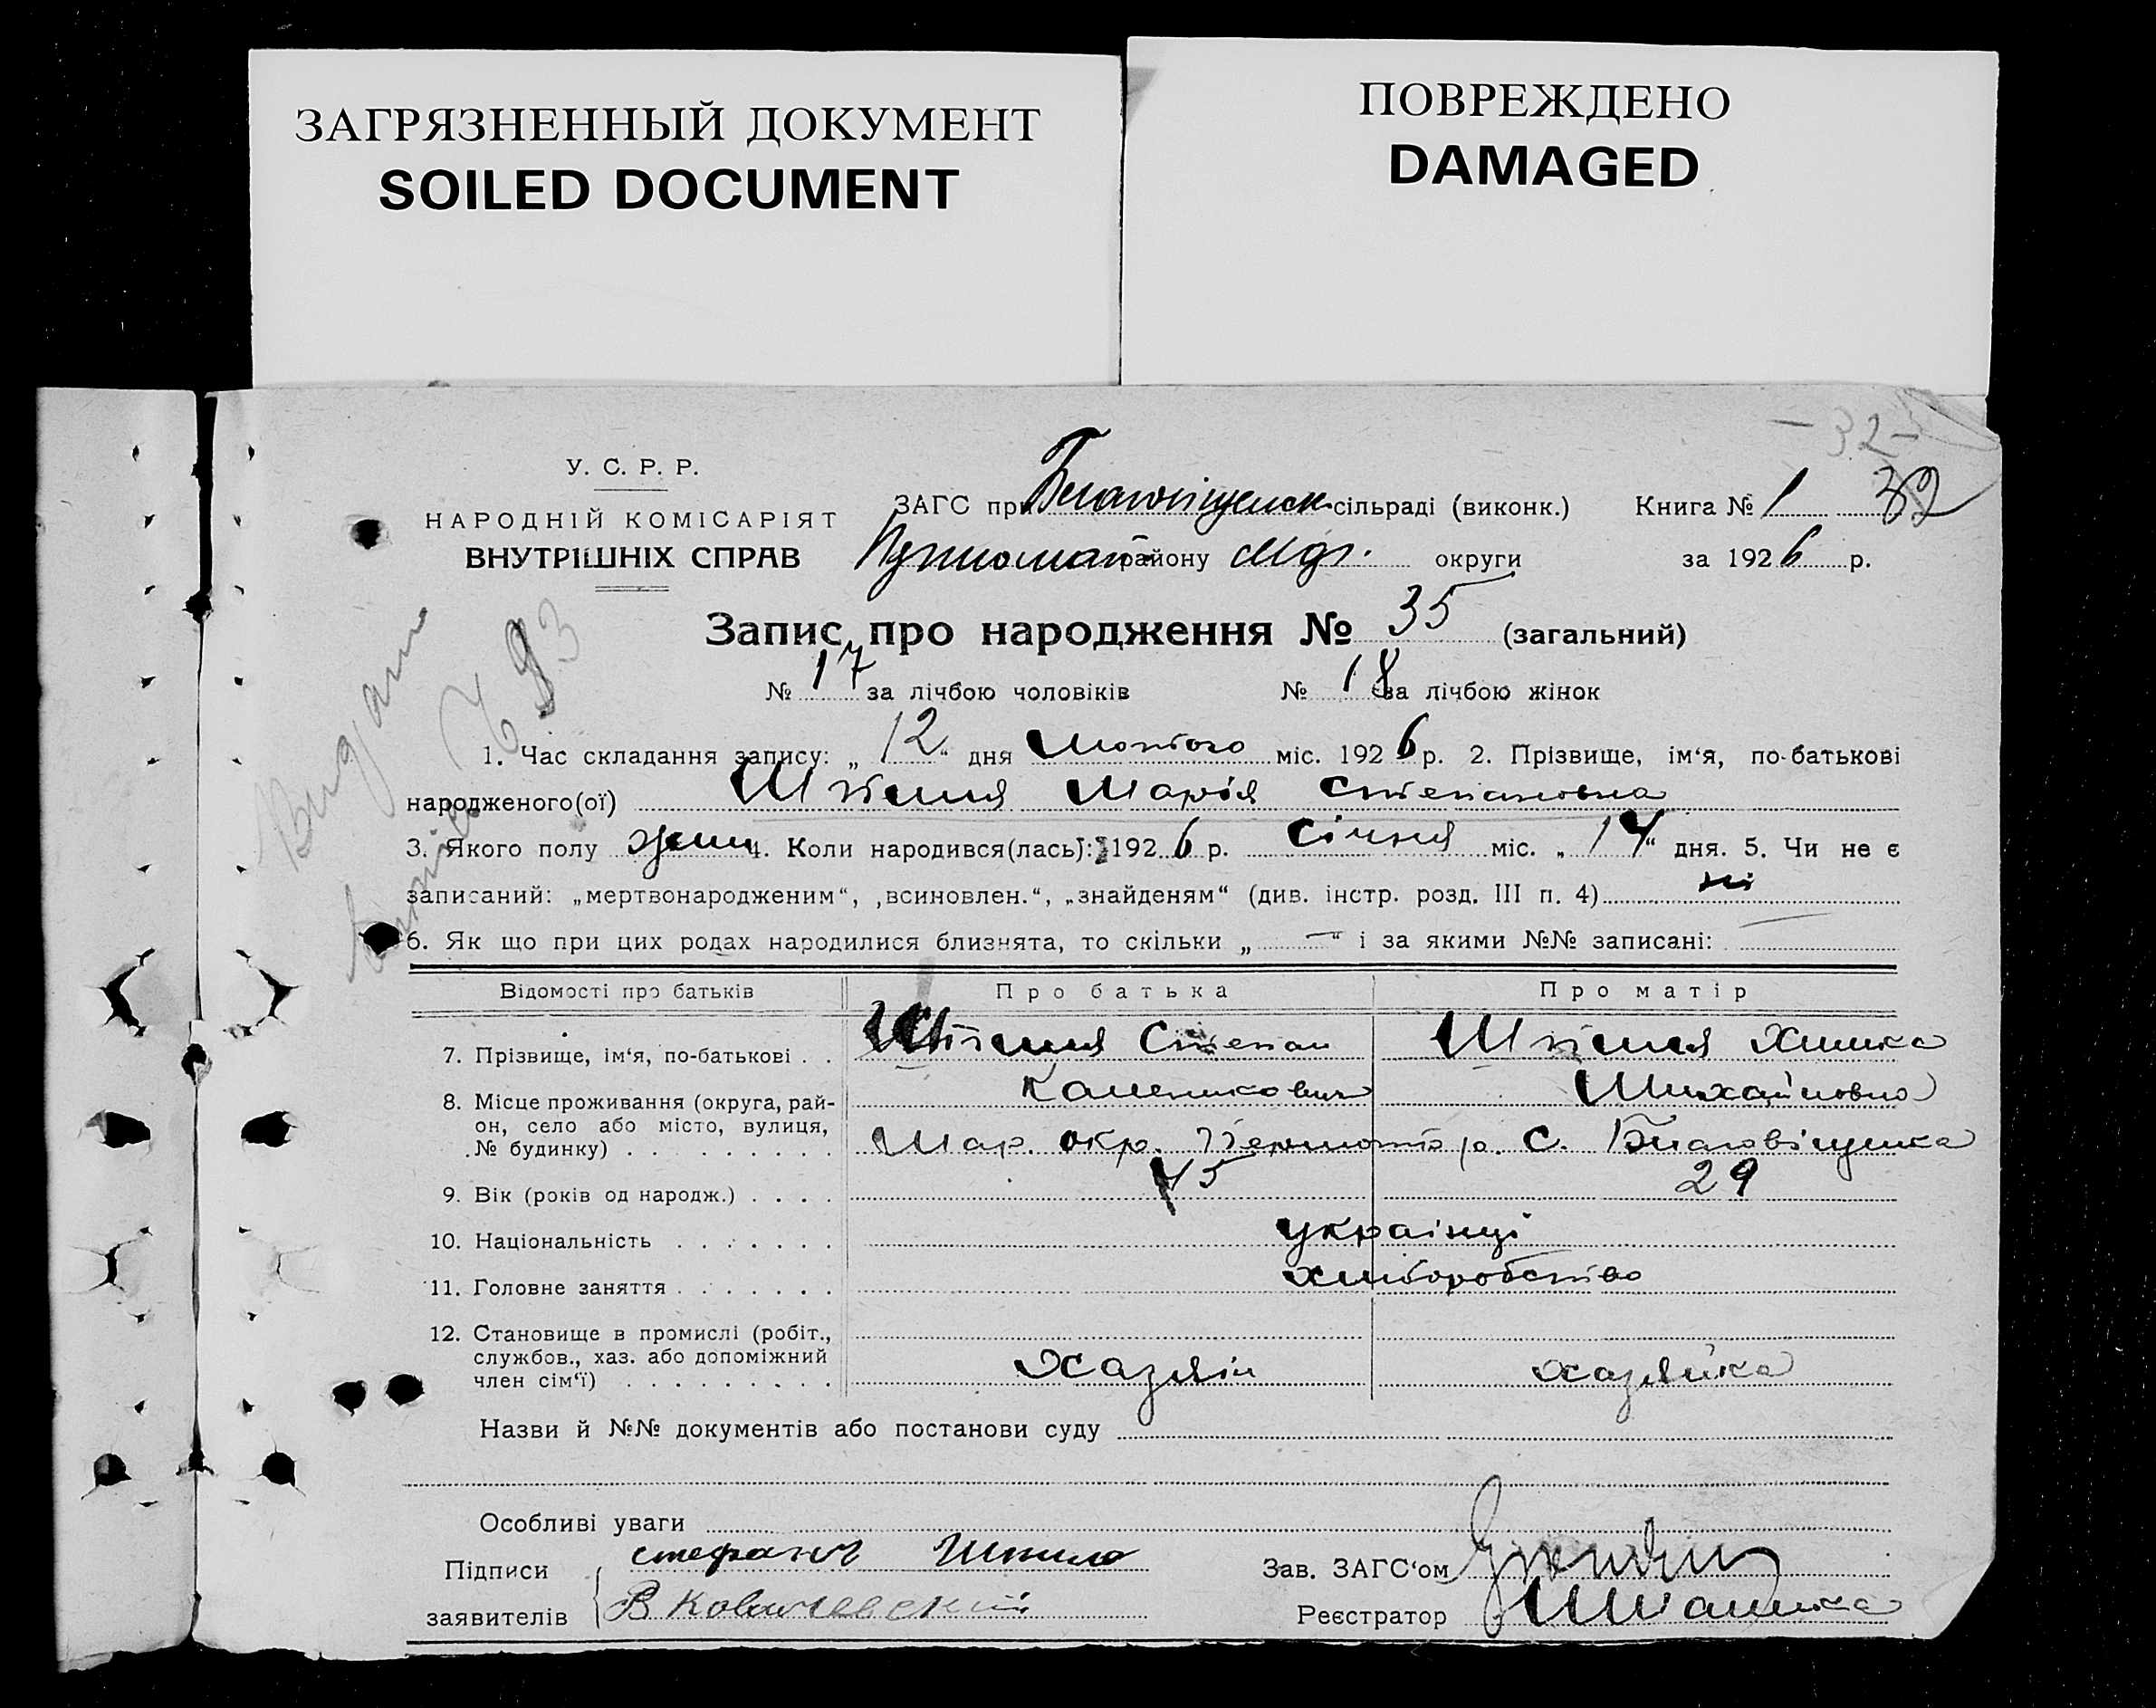 ЗАГРЯЗНЕННЫЙ ДОКУМЕНТ
SOILED DOCUMENT
ПОВРЕЖДЕНО
DAMAGED
- 32 -
У. С. Р. Р.
НАРОДНІЙ КОМІСАРІЯТ
ВНУТРІШНІХ СПРАВ
ЗАГС при сільраді (виконк.) Книга № 1 32
району округи за 1926 р.
Запис про народження № 35 (загальний)
№ 17 за лічбою чоловіків № 18 за лічбою жінок
1. Час складання запису: „ 12 “ дня Лютого міс. 1926 р. 2. Прізвище, ім‘я, по-батькові
народженого(ої) Марія Степановна
3. Якого полу жін 4. Коли народився(лась): 1926 р. Січня міс. „ 14 “ дня. 5. Чи не є
записаний: „мертвонародженим“, „всиновлен.“, „знайденям“ (див. інстр. розд. III п. 4) ні
6. Як що при цих родах народилися близнята, то скільки „ — “ і за якими №№ записані: —
Відомості про батьків Про батька Про матір
7. Прізвище, ім‘я, по-батькові . . Степан
Каленикович Михайловна
8. Місце проживання (округа, рай-
он, село або місто, вулиця,
№ будинку) . . . . . . . . . Мар. окр. р. С. Благовіщенка
9. Вік (років од народж.) . . . . 45 29
10. Національність . . . . . . . українці
11. Головне заняття . . . . . . . хліборобство
12. Становище в промислі (робіт.,
службов., хаз. або допоміжний
член сім‘ї) . . . . . . . . . хазяін хазяйка
Назви й №№ документів або постанови суду
Особливі уваги
Підписи
заявителів
Зав. ЗАГС‘ом
Реєстратор